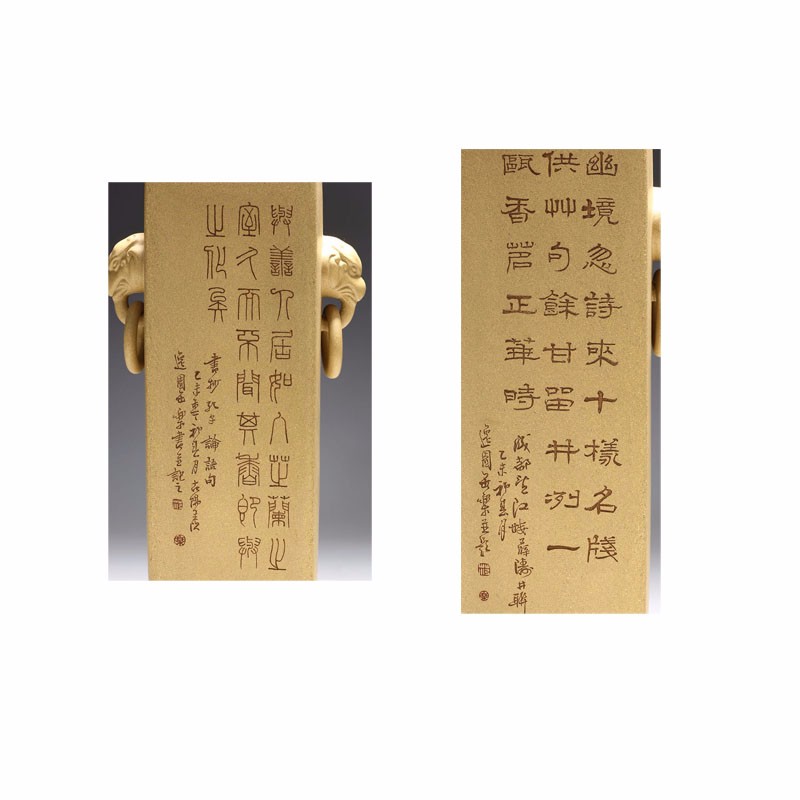 與善人居如入芝蘭之
室久而不聞其香即與
之化矣
書抄孔子論語句
乙未初春月
逸園樂書並記之
幽境忽詩來十樣名牋
供艸句餘甘留井冽一
甌香茗正華時
成都望江樓薛濤井聯
乙未初春月
逸園樂並題